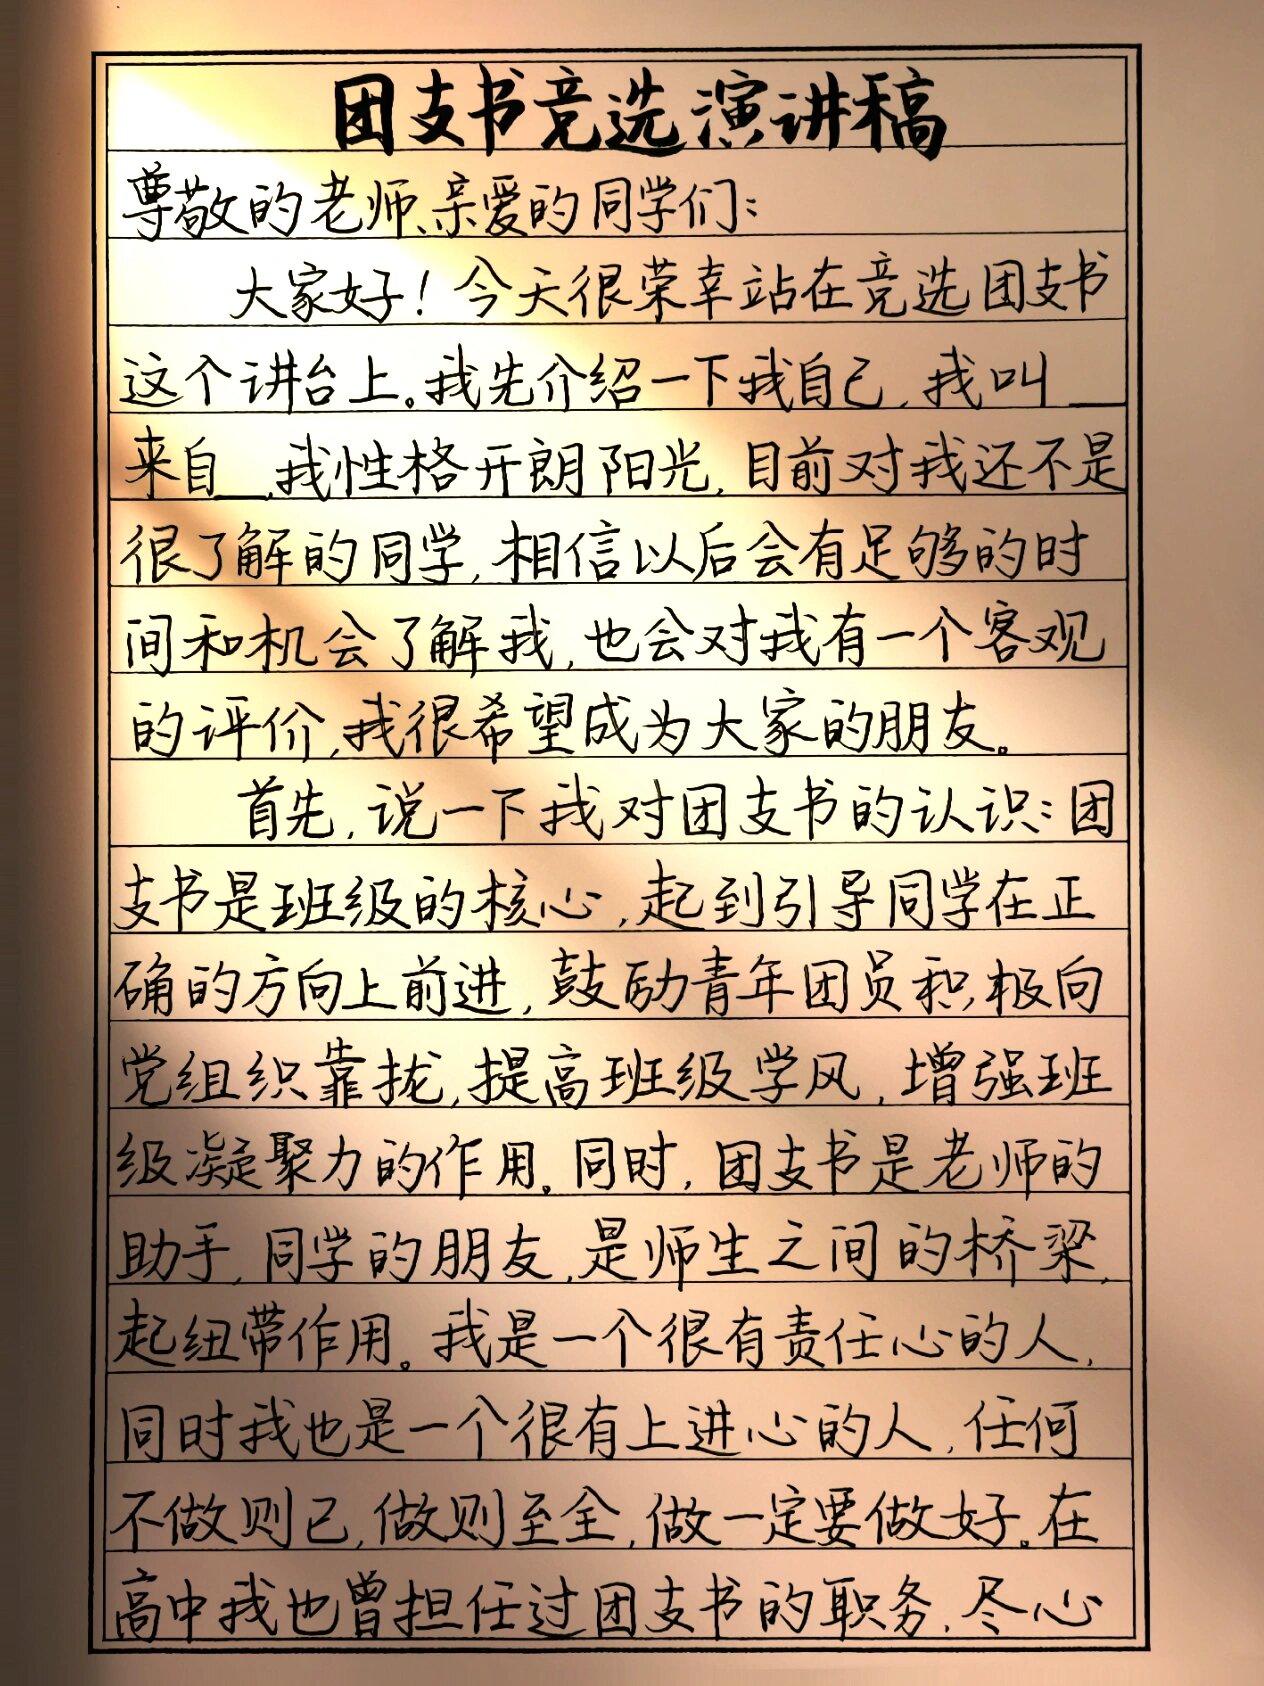 团支书竞选演讲稿
尊敬的老师、亲爱的同学们：
大家好！今天很荣幸站在竞选团支书
这个讲台上。我先介绍一下我自己，我叫__
来自__，我性格开朗阳光，目前对我还不是
很了解的同学，相信以后会有足够的时
间和机会了解我，也会对我有一个客观
的评价，我很希望成为大家的朋友。
首先，说一下我对团支书的认识：团
支书是班级的核心，起到引导同学在正
确的方向上前进，鼓励青年团员积极向
党组织靠拢，提高班级学风，增强班
级凝聚力的作用。同时，团支书是老师的
助手，同学的朋友，是师生之间的桥梁，
起纽带作用。我是一个很有责任心的人，
同时我也是一个很有上进心的人，任何
不做则已，做则至全，做一定要做好。在
高中我也曾担任过团支书的职务，尽心